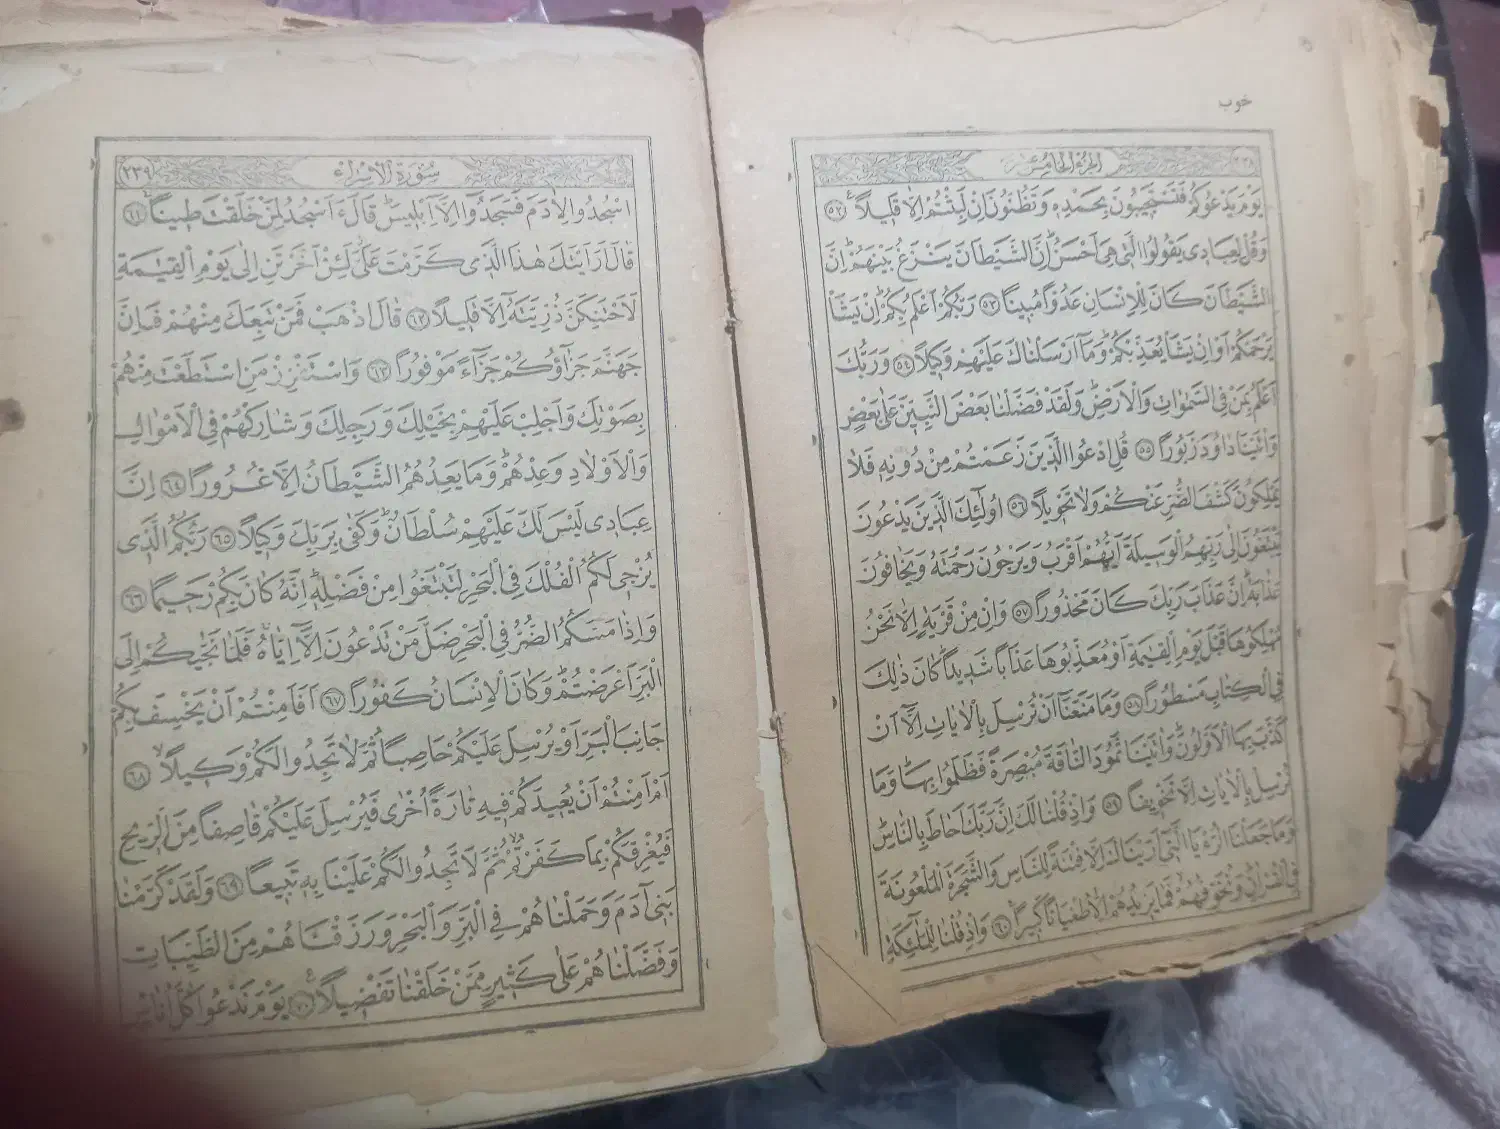 خوب
الجزء الخامس عشر
يَوْمَ يَدْعُوكُمْ فَتَسْتَجِيبُونَ بِحَمْدِهِ وَتَظُنُّونَ اِنْ لَبِثْتُمْ اِلَّا قَلِيلاً ٥٢
وَقُلْ لِعِبَادِى يَقُولُوا الَّتِى هِىَ اَحْسَنُ اِنَّ الشَّيْطَانَ يَنْزَغُ بَيْنَهُمْ اِنَّ
الشَّيْطَانَ كَانَ لِلْاِنْسَانِ عَدُوًّا مُبِينًا ٥٣ رَبُّكُمْ اَعْلَمُ بِكُمْ اِنْ يَشَأْ
يَرْحَمْكُمْ اَوْ اِنْ يَشَأْ يُعَذِّبْكُمْ وَمَا اَرْسَلْنَاكَ عَلَيْهِمْ وَكِيلاً ٥٤ وَرَبُّكَ
اَعْلَمُ بِمَنْ فِى السَّمٰوَاتِ وَالْاَرْضِ وَلَقَدْ فَضَّلْنَا بَعْضَ النَّبِيِّنَ عَلٰى بَعْضٍ
وَاٰتَيْنَا دَاوُدَ زَبُورًا ٥٥ قُلِ ادْعُوا الَّذِينَ زَعَمْتُمْ مِنْ دُونِهِ فَلَا
يَمْلِكُونَ كَشْفَ الضُّرِّ عَنْكُمْ وَلَا تَحْوِيلاً ٥٦ اُولٰئِكَ الَّذِينَ يَدْعُونَ
يَبْتَغُونَ اِلٰى رَبِّهِمُ الْوَسِيلَةَ اَيُّهُمْ اَقْرَبُ وَيَرْجُونَ رَحْمَتَهُ وَيَخَافُونَ
عَذَابَهُ اِنَّ عَذَابَ رَبِّكَ كَانَ مَحْذُورًا ٥٧ وَاِنْ مِنْ قَرْيَةٍ اِلَّا نَحْنُ
مُهْلِكُوهَا قَبْلَ يَوْمِ الْقِيٰمَةِ اَوْ مُعَذِّبُوهَا عَذَابًا شَدِيدًا كَانَ ذٰلِكَ
فِى الْكِتَابِ مَسْطُورًا ٥٨ وَمَا مَنَعَنَا اَنْ نُرْسِلَ بِالْاٰيَاتِ اِلَّا اَنْ
كَذَّبَ بِهَا الْاَوَّلُونَ وَاٰتَيْنَا ثَمُودَ النَّاقَةَ مُبْصِرَةً فَظَلَمُوا بِهَا وَمَا
نُرْسِلُ بِالْاٰيَاتِ اِلَّا تَخْوِيفًا ٥٩ وَاِذْ قُلْنَا لَكَ اِنَّ رَبَّكَ اَحَاطَ بِالنَّاسِ
وَمَا جَعَلْنَا الرُّءْيَا الَّتِى اَرَيْنَاكَ اِلَّا فِتْنَةً لِلنَّاسِ وَالشَّجَرَةَ الْمَلْعُونَةَ
فِى الْقُرْاٰنِ وَنُخَوِّفُهُمْ فَمَا يَزِيدُهُمْ اِلَّا طُغْيَانًا كَبِيرًا ٦٠ وَاِذْ قُلْنَا لِلْمَلٰئِكَةِ
سُورَةُ الْاِسْرَاءِ ٢٣٩
اسْجُدُوا لِاٰدَمَ فَسَجَدُوا اِلَّا اِبْلِيسَ قَالَ ءَاَسْجُدُ لِمَنْ خَلَقْتَ طِينًا ٦١
قَالَ اَرَاَيْتَكَ هٰذَا الَّذِى كَرَّمْتَ عَلَىَّ لَئِنْ اَخَّرْتَنِ اِلٰى يَوْمِ الْقِيٰمَةِ
لَاَحْتَنِكَنَّ ذُرِّيَّتَهُ اِلَّا قَلِيلاً ٦٢ قَالَ اذْهَبْ فَمَنْ تَبِعَكَ مِنْهُمْ فَاِنَّ
جَهَنَّمَ جَزَاؤُكُمْ جَزَاءً مَوْفُورًا ٦٣ وَاسْتَفْزِزْ مَنِ اسْتَطَعْتَ مِنْهُمْ
بِصَوْتِكَ وَاَجْلِبْ عَلَيْهِمْ بِخَيْلِكَ وَرَجِلِكَ وَشَارِكْهُمْ فِى الْاَمْوَالِ
وَالْاَوْلَادِ وَعِدْهُمْ وَمَا يَعِدُهُمُ الشَّيْطَانُ اِلَّا غُرُورًا ٦٤ اِنَّ
عِبَادِى لَيْسَ لَكَ عَلَيْهِمْ سُلْطَانٌ وَكَفٰى بِرَبِّكَ وَكِيلاً ٦٥ رَبُّكُمُ الَّذِى
يُزْجِى لَكُمُ الْفُلْكَ فِى الْبَحْرِ لِتَبْتَغُوا مِنْ فَضْلِهِ اِنَّهُ كَانَ بِكُمْ رَحِيمًا ٦٦
وَاِذَا مَسَّكُمُ الضُّرُّ فِى الْبَحْرِ ضَلَّ مَنْ تَدْعُونَ اِلَّا اِيَّاهُ فَلَمَّا نَجّٰيكُمْ اِلَى
الْبَرِّ اَعْرَضْتُمْ وَكَانَ الْاِنْسَانُ كَفُورًا ٦٧ اَفَاَمِنْتُمْ اَنْ يَخْسِفَ بِكُمْ
جَانِبَ الْبَرِّ اَوْ يُرْسِلَ عَلَيْكُمْ حَاصِبًا ثُمَّ لَا تَجِدُوا لَكُمْ وَكِيلاً ٦٨
اَمْ اَمِنْتُمْ اَنْ يُعِيدَكُمْ فِيهِ تَارَةً اُخْرٰى فَيُرْسِلَ عَلَيْكُمْ قَاصِفًا مِنَ الرِّيحِ
فَيُغْرِقَكُمْ بِمَا كَفَرْتُمْ ثُمَّ لَا تَجِدُوا لَكُمْ عَلَيْنَا بِهِ تَبِيعًا ٦٩ وَلَقَدْ كَرَّمْنَا
بَنِى اٰدَمَ وَحَمَلْنَاهُمْ فِى الْبَرِّ وَالْبَحْرِ وَرَزَقْنَاهُمْ مِنَ الطَّيِّبَاتِ
وَفَضَّلْنَاهُمْ عَلٰى كَثِيرٍ مِمَّنْ خَلَقْنَا تَفْضِيلاً ٧٠ يَوْمَ نَدْعُوا كُلَّ اُنَاسٍ